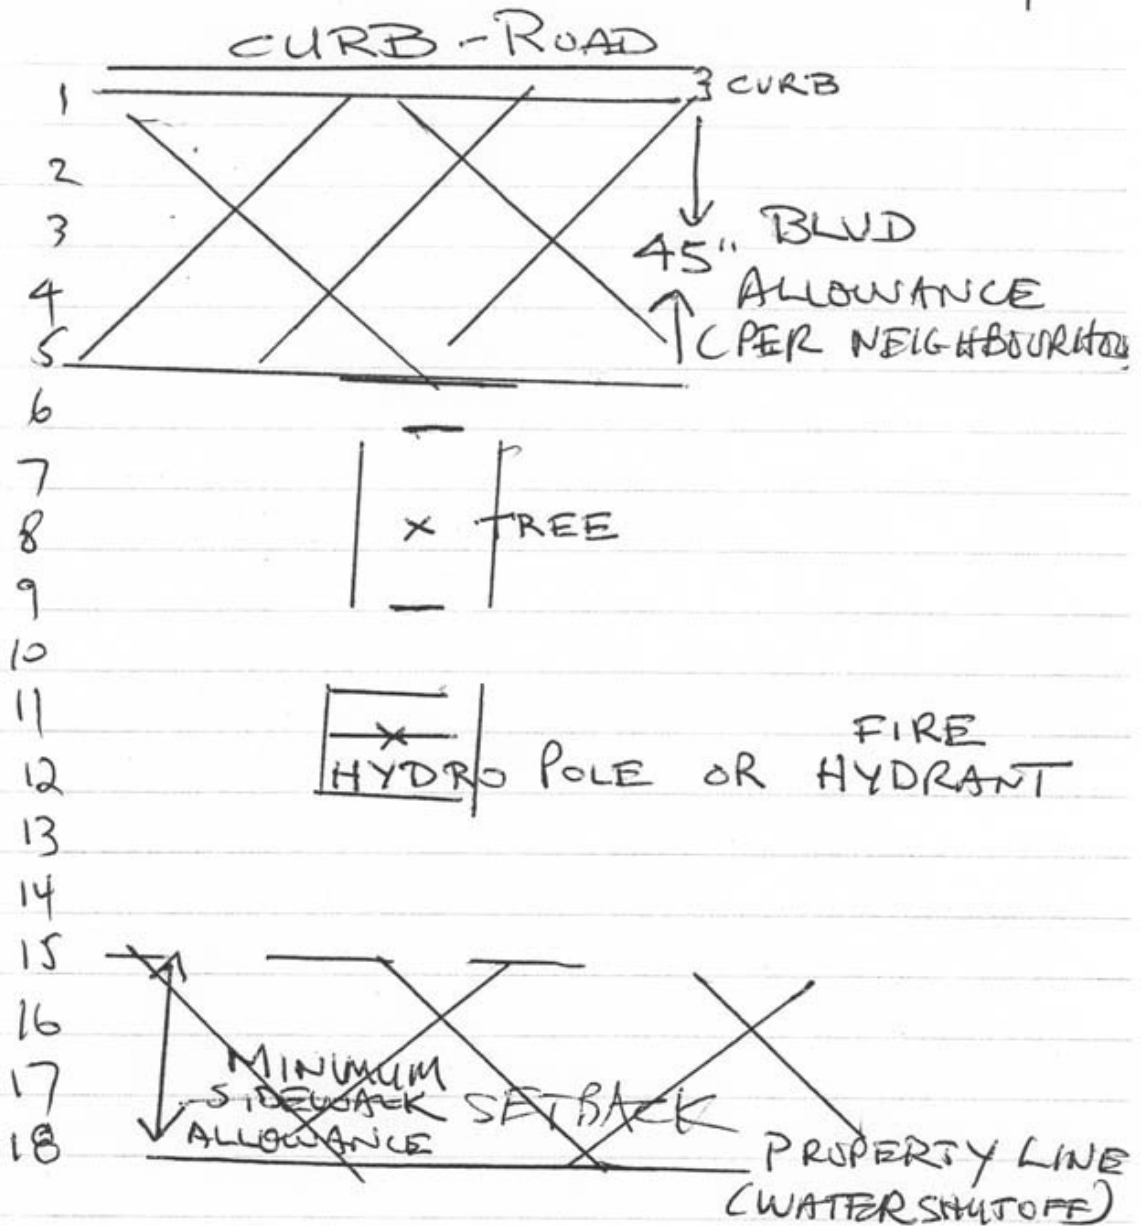 CURB - ROAD
1 3 CURB
2
3 45" BLVD
4 ALLOWANCE
5 (PER NEIGHBOURHOOD
6
7
8 X TREE
9
10
11 FIRE
12 HYDRO POLE OR HYDRANT
13
14
15
16
17 MINIMUM
SIDEWALK SETBACK
18 ALLOWANCE
PROPERTY LINE
(WATER SHUTOFF)